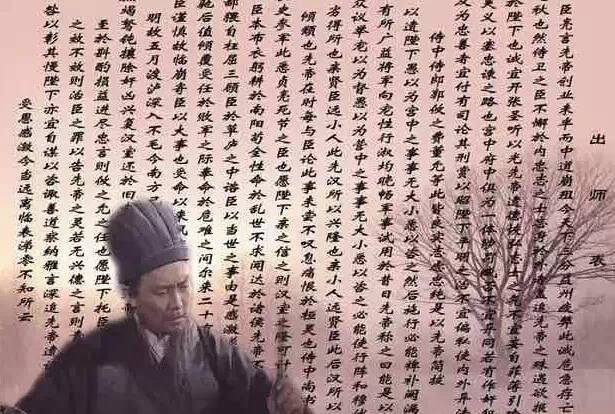 出師表
臣亮言先帝创业未半而中道崩殂今天下三分益州疲弊此诚危急存
秋也然侍卫之臣不懈於内忠志之士忘身於外者盖追先帝之殊遇欲报
於陛下也诚宜开张圣听以光先帝遗德恢弘志士之气不宜妄自菲薄引
失义以塞忠谏之路也宫中府中俱为一体陟罚臧否不宜异同若有作奸
及为忠善者宜付有司论其刑賞以昭陛下平明之治不宜偏私使内外异法
侍中侍郎郭攸之费董允等此皆良实志虑忠纯是以先帝简拔
以遗陛下愚以为宫中之事事无大小悉以咨之然后施行必能裨补阙漏
有所广益將军向宠性行淑均晓畅军事试用於昔日先帝称之曰能是以
众议举宠以为督愚以为营中之事事无大小悉以咨之必能使行阵和穆
方得所也亲贤臣远小人此先汉所以兴隆也亲小人远贤臣此后汉所以
倾頹也先帝在时每与臣论此事未尝不叹息痛恨於桓灵也侍中尚书
史参军此悉贞亮死节之臣也愿陛下亲之信之则汉室之隆可计
臣本布衣躬耕於南阳苟全性命於乱世不求闻达於诸侯先帝不
鄙猥自枉屈三顾臣於草庐之中谘臣以当世之事由是感激
后值倾覆受任於败军之际奉命於危难之间尔来二十
臣谨慎故临崩寄臣以大事也受命以来夙
明故五月渡泸深入不毛今南方
竭驽钝攘除奸凶兴复汉室还於旧
至於斟酌损益进尽忠言则攸之允之任也愿陛下托臣
之效不效则治臣之罪以告先帝之灵若无兴德之言则责
咎以彰其慢陛下亦宜自谋以谘诹善道察纳雅言深追先帝遗
受恩感激今当远离临表涕零不知所云